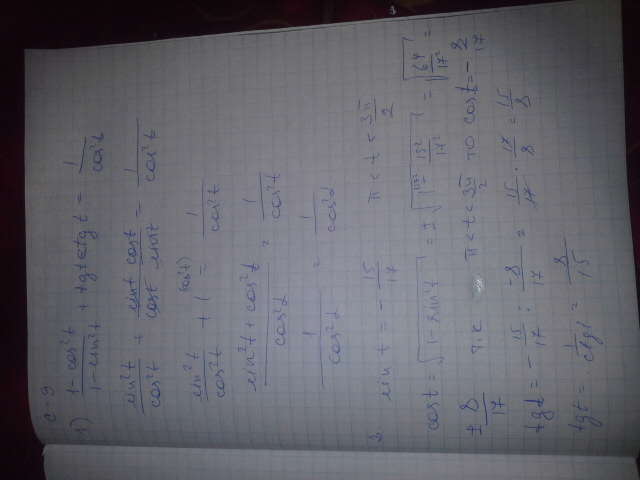 с-9
1) (1-cos²t)/(1-sin²t) + tgt ctgt = 1/cos²t
sin²t/cos²t + sint/cost cost/sint = 1/cos²t
sin²t/cos²t + 1^(cos²t) = 1/cos²t
(sin²t + cos²t)/cos²t = 1/cos²t
1/cos²t = 1/cos²t
2. sin t = - 15/17 π < t < 3π/2
cost = √(1-sin²t) = ± √(1 - 15²/17²) = √(64/17²) =
± 8/17 т.к π < t < 3π/2 то cost = - 8/17
tgt = - 15/17 : -8/17 = 15/17 · 17/8 = 15/8
tgt = 1/ctgt = 8/15